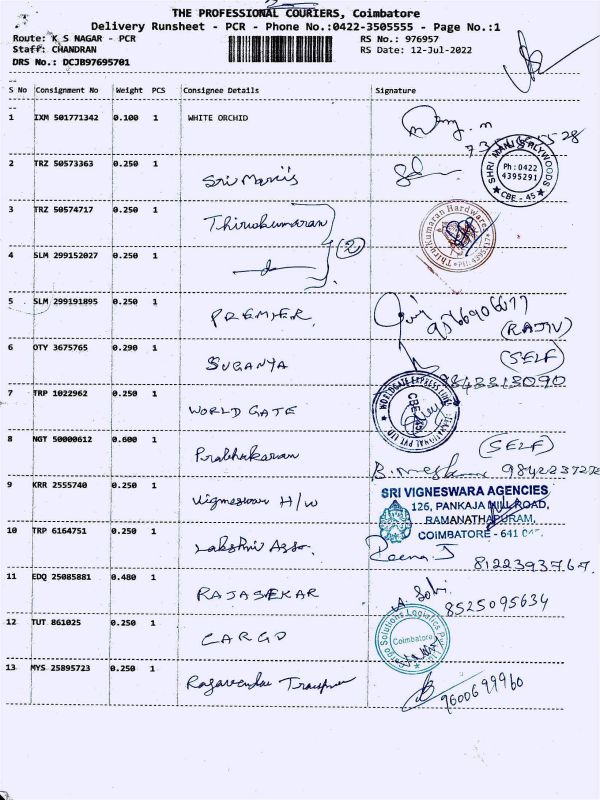 THE PROFESSIONAL COURIERS, Coimbatore
Delivery Runsheet - PCR - Phone No.:0422-3505555 - Page No.:1
Route: K S NAGAR - PCR RS No.: 976957
Staff: CHANDRAN RS Date: 12-Jul-2022
DRS No.: DCJB97695701
S No Consignment No Weight PCS Consignee Details Signature
1 IXM 501771342 0.100 1 WHITE ORCHID
2 TRZ 50573363 0.250 1 Sri Manis
SHRI MANIS PLYWOODS
Ph : 0422
4395291
CBE - 45
3 TRZ 50574717 0.250 1 Thirukumaran
Thirukumaran Hardware
4 SLM 299152027 0.250 1 2
5 SLM 299191895 0.250 1 PREMIER
9566906677
(RAJIV)
6 OTY 3675765 0.290 1 SUGANYA (SELF)
9843313090
7 TRP 1022962 0.250 1 WORLD GATE
WORLDGATE EXPRESS LINES
INTERNATIONAL PVT LTD
CBE-45
8 NGT 50000612 0.600 1 Prabhakaran (SELF)
9 KRR 2555740 0.250 1 Vigneswar H/W
SRI VIGNESWARA AGENCIES
126, PANKAJA MILL ROAD,
RAMANATHAPURAM,
COIMBATORE - 641
10 TRP 6164751 0.250 1 Lakshmi Asso. Reena.J
8122393767
11 EDQ 25085881 0.480 1 RAJASEKAR A. Sobi
8525095634
12 TUT 861025 0.250 1 CARGO
Cargo Solutions Logistics
Coimbatore
13 MYS 25895723 0.250 1 Ragavendra Transport
9600699960